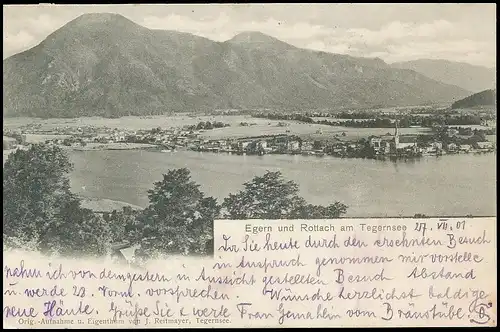 Egern und Rottach am Tegernsee
27. VII. 01
Da Sie heute durch den ersehnten Besuch
in Anspruch genommen mir vorstelle
nahm ich von dem gestern in Aussicht gestellten Besuch Abstand
u. werde 23. Vorm. vorsprechen. Wünsche herzlichst baldige
neue Häute. Grüße Sie u. werte Frau Gemahlin vom Braustüberl
Orig.-Aufnahme u. Eigenthum von J. Reitmayer, Tegernsee.